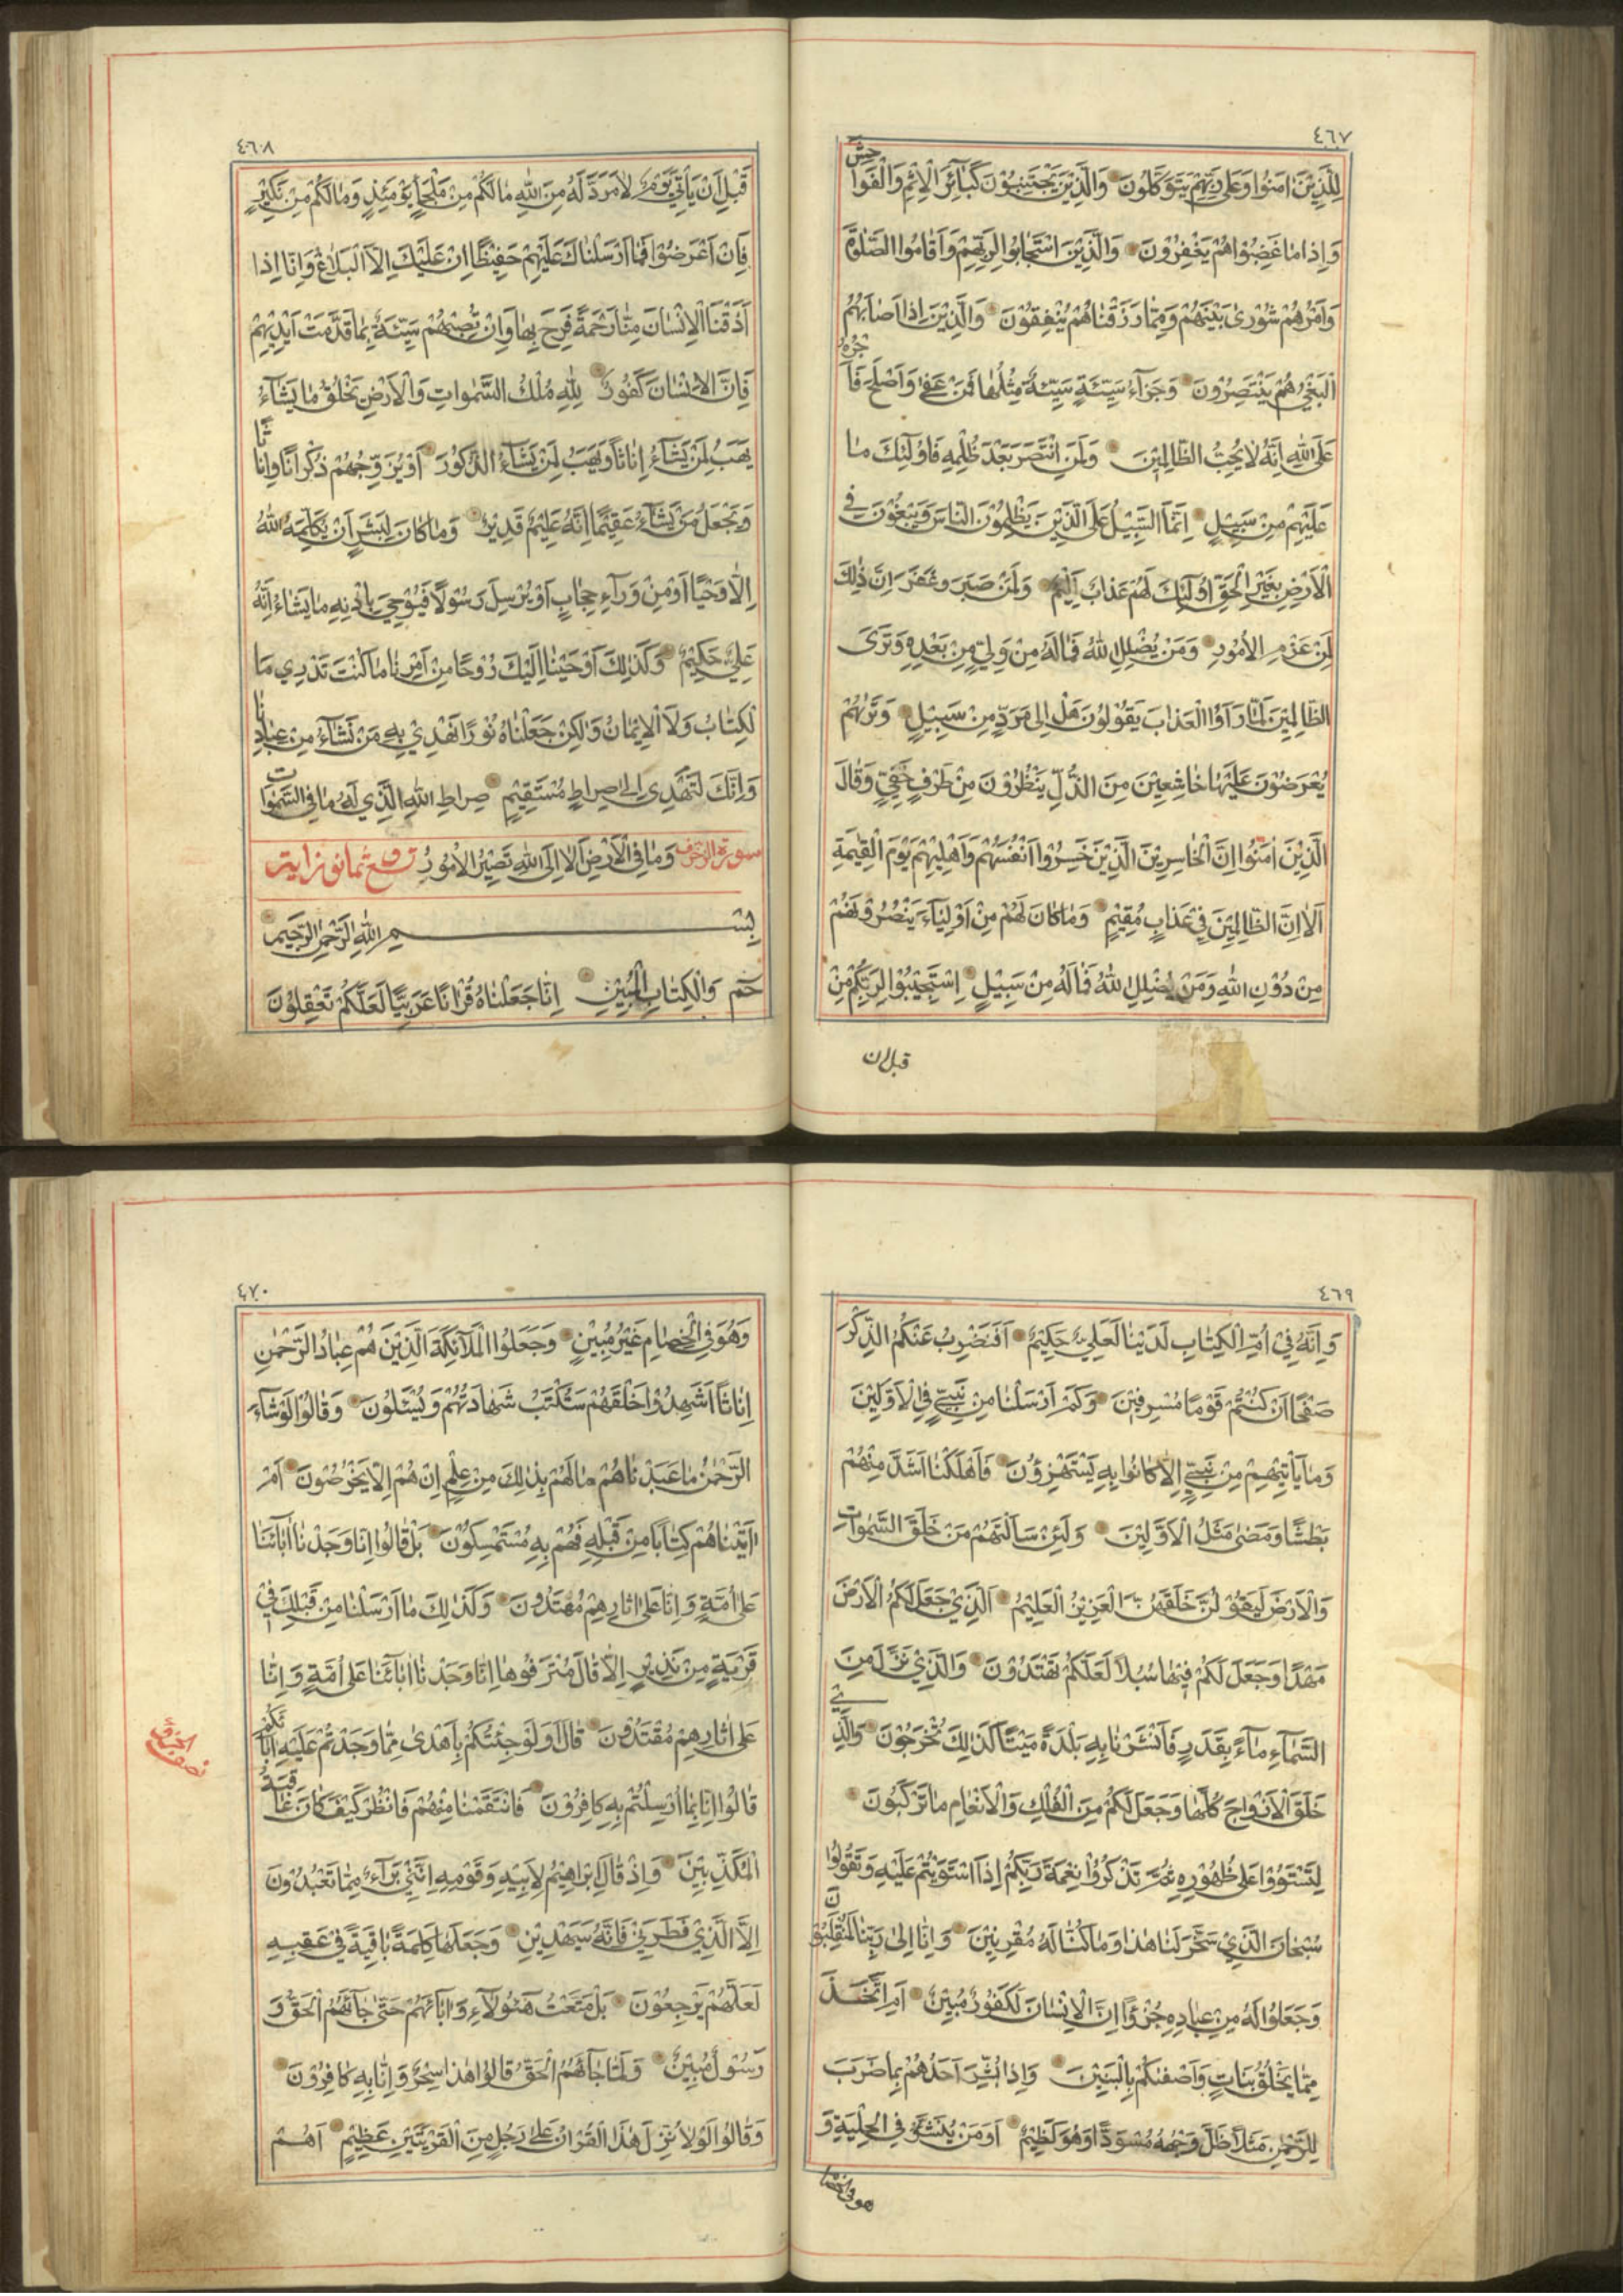 ٤٦٧
لِلَّذِينَ اٰمَنُوا وَعَلٰى رَبِّهِمْ يَتَوَكَّلُونَ وَالَّذِينَ يَجْتَنِبُونَ كَبَآئِرَ الْاِثْمِ وَالْفَوَا
حِشَ
وَاِذَا مَا غَضِبُوا هُمْ يَغْفِرُونَ وَالَّذِينَ اسْتَجَابُوا لِرَبِّهِمْ وَاَقَامُوا الصَّلٰوةَ
وَاَمْرُهُمْ شُورٰى بَيْنَهُمْ وَمِمَّا رَزَقْنَاهُمْ يُنْفِقُونَ وَالَّذِينَ اِذَا اَصَابَهُمُ
الْبَغْيُ هُمْ يَنْتَصِرُونَ وَجَزَآءُ سَيِّئَةٍ سَيِّئَةٌ مِثْلُهَا فَمَنْ عَفٰى وَاَصْلَحَ فَاَ
جْرُهُ
عَلَى اللّٰهِ اِنَّهُ لَا يُحِبُّ الظَّالِمِينَ وَلَمَنِ انْتَصَرَ بَعْدَ ظُلْمِهِ فَاُولٰئِكَ مَا
عَلَيْهِمْ مِنْ سَبِيلٍ اِنَّمَا السَّبِيلُ عَلَى الَّذِينَ يَظْلِمُونَ النَّاسَ وَيَبْغُونَ فِي
الْاَرْضِ بِغَيْرِ الْحَقِّ اُولٰئِكَ لَهُمْ عَذَابٌ اَلِيمٌ وَلَمَنْ صَبَرَ وَغَفَرَ اِنَّ ذٰلِكَ
لَمِنْ عَزْمِ الْاُمُورِ وَمَنْ يُضْلِلِ اللّٰهُ فَمَا لَهُ مِنْ وَلِيٍّ مِنْ بَعْدِهِ وَتَرَى
الظَّالِمِينَ لَمَّا رَاَوُا الْعَذَابَ يَقُولُونَ هَلْ اِلٰى مَرَدٍّ مِنْ سَبِيلٍ وَتَرٰيهُمْ
يُعْرَضُونَ عَلَيْهَا خَاشِعِينَ مِنَ الذُّلِّ يَنْظُرُونَ مِنْ طَرْفٍ خَفِيٍّ وَقَالَ
الَّذِينَ اٰمَنُوا اِنَّ الْخَاسِرِينَ الَّذِينَ خَسِرُوا اَنْفُسَهُمْ وَاَهْلِيهِمْ يَوْمَ الْقِيٰمَةِ
اَلَا اِنَّ الظَّالِمِينَ فِي عَذَابٍ مُقِيمٍ وَمَا كَانَ لَهُمْ مِنْ اَوْلِيَآءَ يَنْصُرُونَهُمْ
مِنْ دُونِ اللّٰهِ وَمَنْ يُضْلِلِ اللّٰهُ فَمَا لَهُ مِنْ سَبِيلٍ اِسْتَجِيبُوا لِرَبِّكُمْ مِنْ
قبل ان
٤٦٨
قَبْلِ اَنْ يَأْتِيَ يَوْمٌ لَا مَرَدَّ لَهُ مِنَ اللّٰهِ مَا لَكُمْ مِنْ مَلْجَأٍ يَوْمَئِذٍ وَمَا لَكُمْ مِنْ نَكِيرٍ
فَاِنْ اَعْرَضُوا فَمَا اَرْسَلْنَاكَ عَلَيْهِمْ حَفِيظًا اِنْ عَلَيْكَ اِلَّا الْبَلَاغُ وَاِنَّا اِذَا
اَذَقْنَا الْاِنْسَانَ مِنَّا رَحْمَةً فَرِحَ بِهَا وَاِنْ تُصِبْهُمْ سَيِّئَةٌ بِمَا قَدَّمَتْ اَيْدِيهِمْ
فَاِنَّ الْاِنْسَانَ كَفُورٌ لِلّٰهِ مُلْكُ السَّمٰوَاتِ وَالْاَرْضِ يَخْلُقُ مَا يَشَآءُ
يَهَبُ لِمَنْ يَشَآءُ اِنَاثًا وَيَهَبُ لِمَنْ يَشَآءُ الذُّكُورَ اَوْ يُزَوِّجُهُمْ ذُكْرَانًا وَاِنَا
ثًا
وَيَجْعَلُ مَنْ يَشَآءُ عَقِيمًا اِنَّهُ عَلِيمٌ قَدِيرٌ وَمَا كَانَ لِبَشَرٍ اَنْ يُكَلِّمَهُ اللّٰهُ
اِلَّا وَحْيًا اَوْ مِنْ وَرَآءِ حِجَابٍ اَوْ يُرْسِلَ رَسُولًا فَيُوحِيَ بِاِذْنِهِ مَا يَشَآءُ اِنَّهُ
عَلِيٌّ حَكِيمٌ وَكَذٰلِكَ اَوْحَيْنَا اِلَيْكَ رُوحًا مِنْ اَمْرِنَا مَا كُنْتَ تَدْرِي مَا
الْكِتَابُ وَلَا الْاِيمَانُ وَلٰكِنْ جَعَلْنَاهُ نُورًا نَهْدِي بِهِ مَنْ نَشَآءُ مِنْ عِبَادِ
نَا
وَاِنَّكَ لَتَهْدِي اِلٰى صِرَاطٍ مُسْتَقِيمٍ صِرَاطِ اللّٰهِ الَّذِي لَهُ مَا فِي السَّمٰوَا
تِ
سورة الزخرف وَمَا فِي الْاَرْضِ اَلَا اِلَى اللّٰهِ تَصِيرُ الْاُمُورُ
بِسْمِ اللّٰهِ الرَّحْمٰنِ الرَّحِيمِ
حٰمٓ وَالْكِتَابِ الْمُبِينِ اِنَّا جَعَلْنَاهُ قُرْاٰنًا عَرَبِيًّا لَعَلَّكُمْ تَعْقِلُونَ
٤٦٩
وَاِنَّهُ فِي اُمِّ الْكِتَابِ لَدَيْنَا لَعَلِيٌّ حَكِيمٌ اَفَنَضْرِبُ عَنْكُمُ الذِّكْرَ
صَفْحًا اَنْ كُنْتُمْ قَوْمًا مُسْرِفِينَ وَكَمْ اَرْسَلْنَا مِنْ نَبِيٍّ فِي الْاَوَّلِينَ
وَمَا يَأْتِيهِمْ مِنْ نَبِيٍّ اِلَّا كَانُوا بِهِ يَسْتَهْزِؤُنَ فَاَهْلَكْنَا اَشَدَّ مِنْهُمْ
بَطْشًا وَمَضٰى مَثَلُ الْاَوَّلِينَ وَلَئِنْ سَاَلْتَهُمْ مَنْ خَلَقَ السَّمٰوَاتِ
وَالْاَرْضَ لَيَقُولُنَّ خَلَقَهُنَّ الْعَزِيزُ الْعَلِيمُ اَلَّذِي جَعَلَ لَكُمُ الْاَرْضَ
مَهْدًا وَجَعَلَ لَكُمْ فِيهَا سُبُلًا لَعَلَّكُمْ تَهْتَدُونَ وَالَّذِي نَزَّلَ مِنَ
السَّمَآءِ مَآءً بِقَدَرٍ فَاَنْشَرْنَا بِهِ بَلْدَةً مَيْتًا كَذٰلِكَ تُخْرَجُونَ وَالَّذِ
ي
خَلَقَ الْاَزْوَاجَ كُلَّهَا وَجَعَلَ لَكُمْ مِنَ الْفُلْكِ وَالْاَنْعَامِ مَا تَرْكَبُونَ
لِتَسْتَوُوا عَلٰى ظُهُورِهِ ثُمَّ تَذْكُرُوا نِعْمَةَ رَبِّكُمْ اِذَا اسْتَوَيْتُمْ عَلَيْهِ وَتَقُولُوا
سُبْحَانَ الَّذِي سَخَّرَ لَنَا هٰذَا وَمَا كُنَّا لَهُ مُقْرِنِينَ وَاِنَّا اِلٰى رَبِّنَا لَمُنْقَلِبُو
نَ
وَجَعَلُوا لَهُ مِنْ عِبَادِهِ جُزْءًا اِنَّ الْاِنْسَانَ لَكَفُورٌ مُبِينٌ اَمِ اتَّخَذَ
مِمَّا يَخْلُقُ بَنَاتٍ وَاَصْفٰيكُمْ بِالْبَنِينَ وَاِذَا بُشِّرَ اَحَدُهُمْ بِمَا ضَرَبَ
لِلرَّحْمٰنِ مَثَلًا ظَلَّ وَجْهُهُ مُسْوَدًّا وَهُوَ كَظِيمٌ اَوَمَنْ يُنَشَّؤُ فِي الْحِلْيَةِ وَ
هو في الخصا
٤٧٠
وَهُوَ فِي الْخِصَامِ غَيْرُ مُبِينٍ وَجَعَلُوا الْمَلٰٓئِكَةَ الَّذِينَ هُمْ عِبَادُ الرَّحْمٰنِ
اِنَاثًا اَشَهِدُوا خَلْقَهُمْ سَتُكْتَبُ شَهَادَتُهُمْ وَيُسْئَلُونَ وَقَالُوا لَوْ شَآءَ
الرَّحْمٰنُ مَا عَبَدْنَاهُمْ مَا لَهُمْ بِذٰلِكَ مِنْ عِلْمٍ اِنْ هُمْ اِلَّا يَخْرُصُونَ اَمْ
اٰتَيْنَاهُمْ كِتَابًا مِنْ قَبْلِهِ فَهُمْ بِهِ مُسْتَمْسِكُونَ بَلْ قَالُوا اِنَّا وَجَدْنَا اٰبَآئَنَا
عَلٰى اُمَّةٍ وَاِنَّا عَلٰى اٰثَارِهِمْ مُهْتَدُونَ وَكَذٰلِكَ مَا اَرْسَلْنَا مِنْ قَبْلِكَ فِي
قَرْيَةٍ مِنْ نَذِيرٍ اِلَّا قَالَ مُتْرَفُوهَا اِنَّا وَجَدْنَا اٰبَآئَنَا عَلٰى اُمَّةٍ وَاِنَّا
عَلٰى اٰثَارِهِمْ مُقْتَدُونَ قَالَ اَوَلَوْ جِئْتُكُمْ بِاَهْدٰى مِمَّا وَجَدْتُمْ عَلَيْهِ اٰبَآ
ئَكُمْ
قَالُوا اِنَّا بِمَا اُرْسِلْتُمْ بِهِ كَافِرُونَ فَانْتَقَمْنَا مِنْهُمْ فَانْظُرْ كَيْفَ كَانَ عَا
قِبَةُ
الْمُكَذِّبِينَ وَاِذْ قَالَ اِبْرَاهِيمُ لِاَبِيهِ وَقَوْمِهِ اِنَّنِي بَرَآءٌ مِمَّا تَعْبُدُونَ
اِلَّا الَّذِي فَطَرَنِي فَاِنَّهُ سَيَهْدِينِ وَجَعَلَهَا كَلِمَةً بَاقِيَةً فِي عَقِبِهِ
لَعَلَّهُمْ يَرْجِعُونَ بَلْ مَتَّعْتُ هٰٓؤُلَآءِ وَاٰبَآئَهُمْ حَتّٰى جَآئَهُمُ الْحَقُّ وَ
رَسُولٌ مُبِينٌ وَلَمَّا جَآئَهُمُ الْحَقُّ قَالُوا هٰذَا سِحْرٌ وَاِنَّا بِهِ كَافِرُونَ
وَقَالُوا لَوْلَا نُزِّلَ هٰذَا الْقُرْاٰنُ عَلٰى رَجُلٍ مِنَ الْقَرْيَتَيْنِ عَظِيمٍ اَهُمْ
نصف الحزب